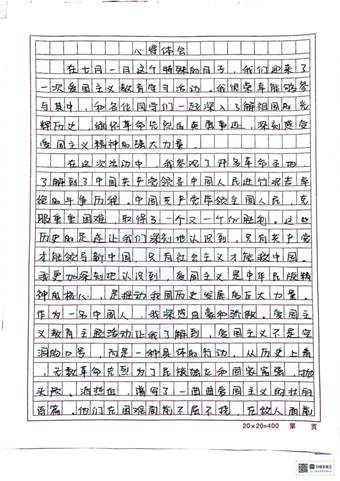 心得体会
在七月一日这个特殊的日子,我们迎来了
一次爱国主义教育学习活动。我很荣幸能够参
与其中,和各位同学们一起深入了解祖国的光
辉历史,缅怀革命先烈的英勇事迹,深刻感受
爱国主义精神的强大力量。
在这次活动中,我参观了许多革命圣地,
了解到了中国共产党领导中国人民进行艰苦卓
绝的斗争历程。中国共产党带领中国人民,克
服重重困难,取得了一个又一个的胜利。这些
历史的足迹让我们深刻地认识到,只有共产党
才能领导新中国,只有社会主义才能救中国。
我更加深刻地认识到,爱国主义是中华民族精
神的核心,是推动我国历史发展的巨大力量。
作为一名中国人,我深感自豪和骄傲。爱国主
义教育主题活动让我了解到,爱国主义不是空
洞的口号,而是一种具体的行动。从历史上看
,无数革命先烈为了民族独立和国家富强,抛
头颅、洒热血,谱写了一曲曲爱国主义的壮丽
诗篇。他们在困难面前不屈不挠,在敌人面前
20×20=400 第 页
扫描全能王